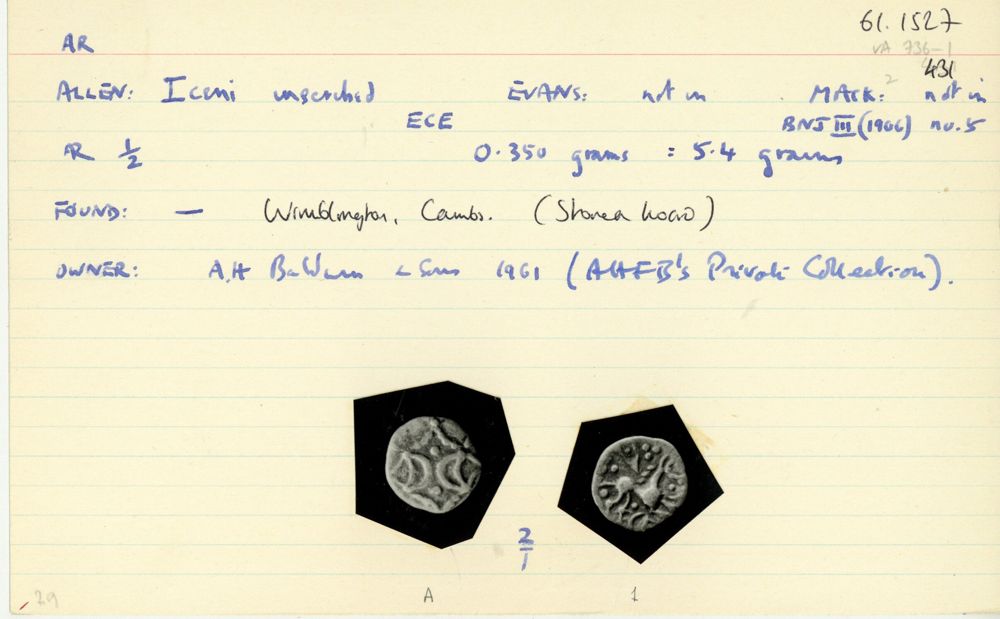 61.1527
AR
VA 736-1
431
2
ALLEN: Iceni uninscribed EVANS: not in MACK: not in
ECE BNJ III (1906) no. 5
AR 1/2 0.350 grams = 5.4 grains
FOUND: — Wimblington, Cambs. (Stonea hoard)
OWNER: A.H Baldwin & Sons 1961 (AHFB's Private Collection).
2/1
A 1
29